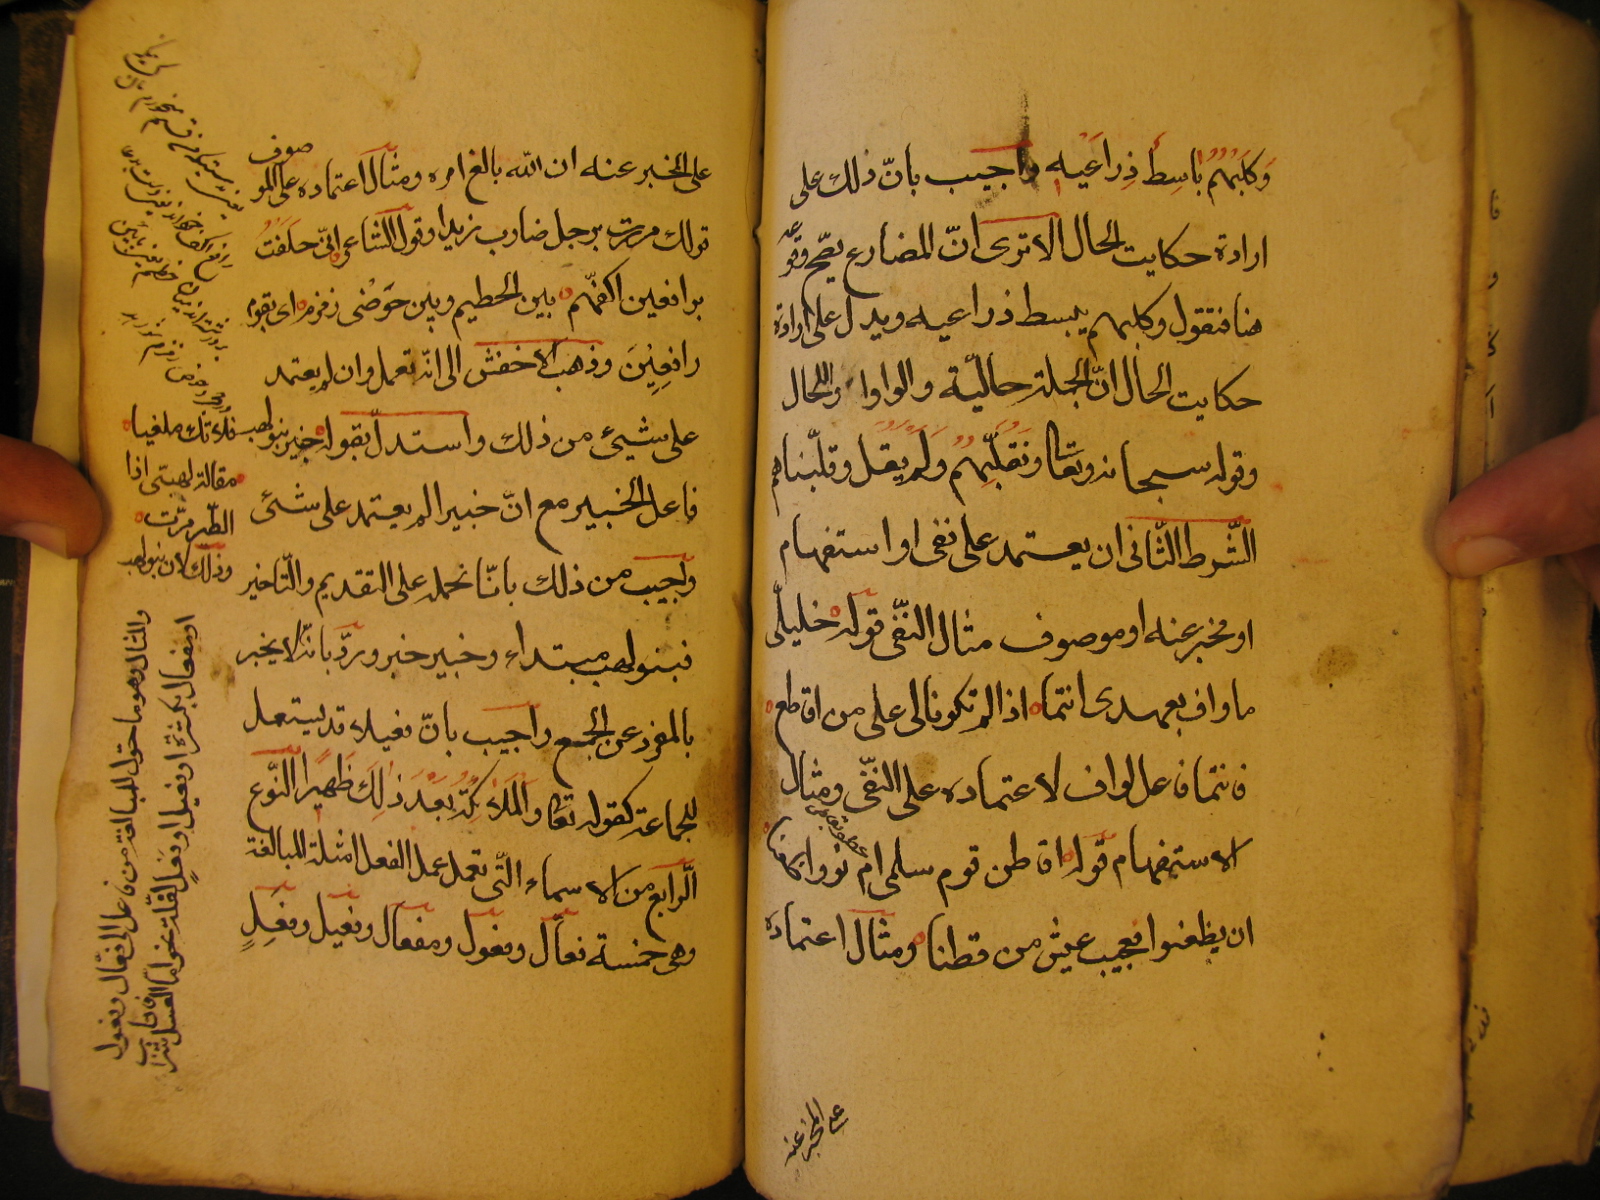 وَكَلبُهُم بَاسِطٌ ذِرَاعَيه واجيب بانّ ذلك على
ارادة حكايت الحال الا ترى انّ المضارع يصحّ وقوعه
هنا فنقول وكلبهم يبسط ذراعيه ويدل على ارادة
حكايت الحال انّ الجملة حاليّة والواو واو الحال
وقوله سبحانه وتعالى وَنُقَلِّبُهُم وَلَم يقل وقلّبناهم
الشّرط الثّانى ان يعتمد على نفى او استفهام
او مخبر عنه او موصوف مثال النّفى قوله خليلىّ
ما واف بعهدى انتما اذا لم تكونا لى على من اقاطع
فانتما فاعل لواف لاعتماده على النفّى ومثال
الاستفهام قوله اقاطن قوم سلمى ام نووا ظعنا
ان يظعنوا فعجيب عيش من قطنا ومثال اعتماده
على المخبر عنه
على المخبر عنه ان الله بالغ امره ومثال اعتماده على الموصوف
قولك مررت برجل ضارب زيدا وقول الشاعر انّى حلفتُ
برافعين اكفّهم بين الحطيم وبين حَوضَى زمزم اى بقوم
رافعِينَ وذهب الاخفش الى انّه تعمل وان لم يعتمد
على شيئ من ذلك واستدلّ بقوله خبير بنو لهب فلا تك ملغيا
مقالة لهبىّ اذا
الطّير مرّت
وذلك لان بنو لهب
فاعل الخبير مع انّ خبيرا لم يعتمد على شئى
واجيب من ذلك بانّا نحمله على التقديم والتّاخير
فبنو لهب مبتداء وخبير خبر وردّ بانّه لا يخبر
بالمفرد عن الجمع واجيب بانّ فعيلا قد يستعمل
للجماعة كقوله تعالى والملائكةُ بَعدَ ذلِكَ ظَهِيرا النّوع
الّرابع من الاسماء الّتى تعمل عمل الفعل امثلة المبالغة
وهى خمسة فعال وفعول ومفعال وفعيل وفعِلٍ
والمثال وهو ما حول للمبالغة من فاعل الى فعّال وفعول
او مفعال بكثرة او فعيل او فعل بقلّة نحو امّا العسل فانا شرّاب